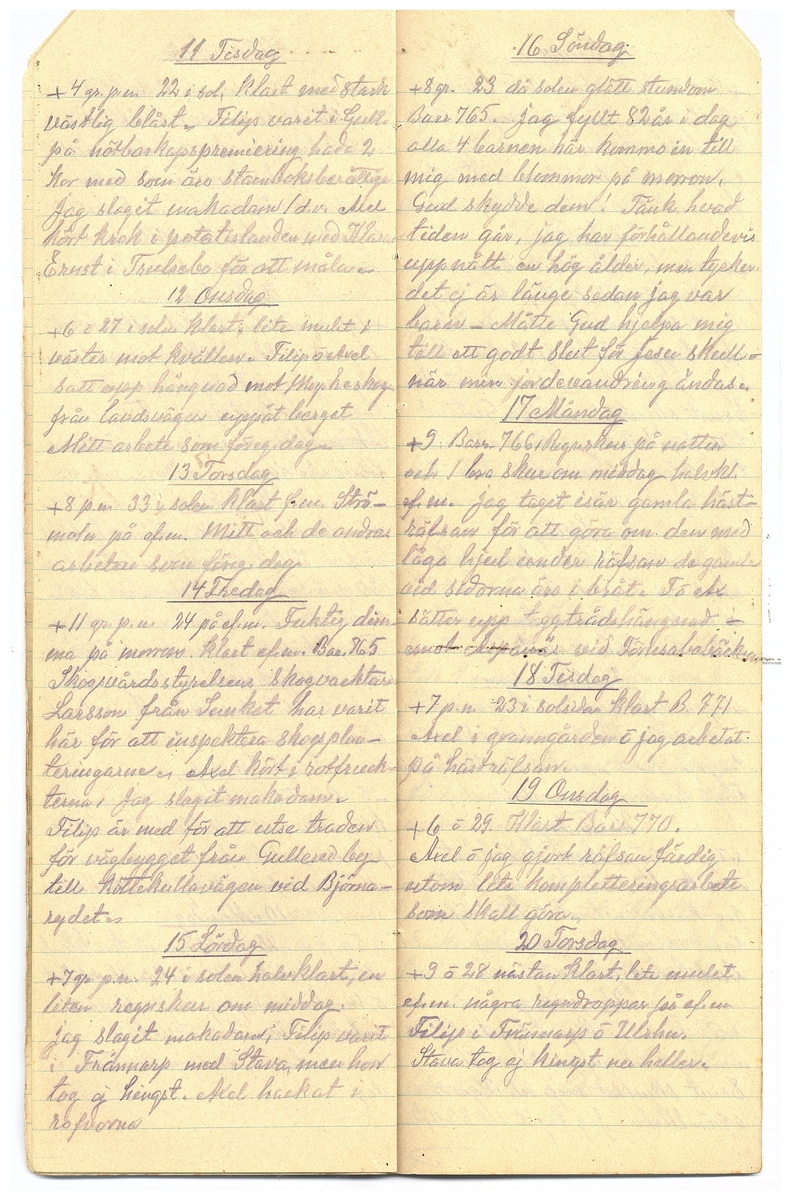 11 Tisdag
+4 gr. p.m. 22 i sol, klart med stark
västlig blåst. Filip varit i Gull.
på nötboskapspremiering hade 2
kor med som äro stamboksberättiga
Jag slagit makadam 1 d.v. Axel
kört krok i potatislanden med
Ernst i Trulsebo för att måla.
12 Onsdag
+6 o 27 i solen klart, lite mulet i
väster mot kvällen. Filip o Axel
satt upp hängnad mot
från landsvägen uppåt berget
Mitt arbete som föreg. dag
13 Torsdag
+8 p.m. 33 i solen klart f.m. Strö-
moln på ef.m. Mitt och de andras
arbeten som föreg. dag
14 Fredag
+11 gr. p.m. 24 på ef.m. Fuktig dim-
ma på morron. klart ef.m. Bar. 765
Skogsvårdsstyrelsens skogvaktare
Larsson från Sunket har varit
här för att inspektera skogsplan-
teringarne. Axel kört i rotfruk-
terna, Jag slagit makadam.
Filip är med för att utse traden
för vägbygget från Gullered by
till Köttkullavägen vid Björna-
rydet.
15 Lördag
+7 gr p.m. 24 i solen halvklart, en
liten regnskur om middag.
Jag slagit makadam, Filip varit
i Främnarp med Stava, men hon
tog ej hingst. Axel hackat i
rofvorna
16 Söndag
+8 gr. 23 då solen glätt stundom
Barr 765. Jag fyllt 82 år i dag
alla 4 barnen här kommo in till
mig med blommor på morron.
Gud skydde dem! Tänk hvad
tiden går, jag har förhållandevis
uppnått en hög ålder, men tycker
det ej är länge sedan jag var
barn – Måtte Gud hjelpa mig
till ett godt slut för Jesu skull
när min jordevandring ändas.
17 Måndag
+9 Barr. 766 Regnskur på natten
och 1 bra skur om middag halvkl.
ef.m. Jag taget isär gamla häst-
räfsan för att göra om den med
låga hjul under räfsan de gamla
vid sidorna äro i bråt. Fo Ax
sätter upp taggtrådshängnad
vid
18 Tisdag
+7 p.m. 23 i solsidan klart B. 771
Axel i granngården o jag arbetat
på hästräfsan.
19 Onsdag
+6 o 29. Klart Barr 770.
Axel o jag gjort räfsan färdig
utom lite kompletteringsarbete
som skall göra.
20 Torsdag
+9 o 28 nästan klart, lite mulet
ef.m. några regndroppar på ef.m
Filip i Främnarp o Ulrhn.
Stava tog ej hingst nu heller.